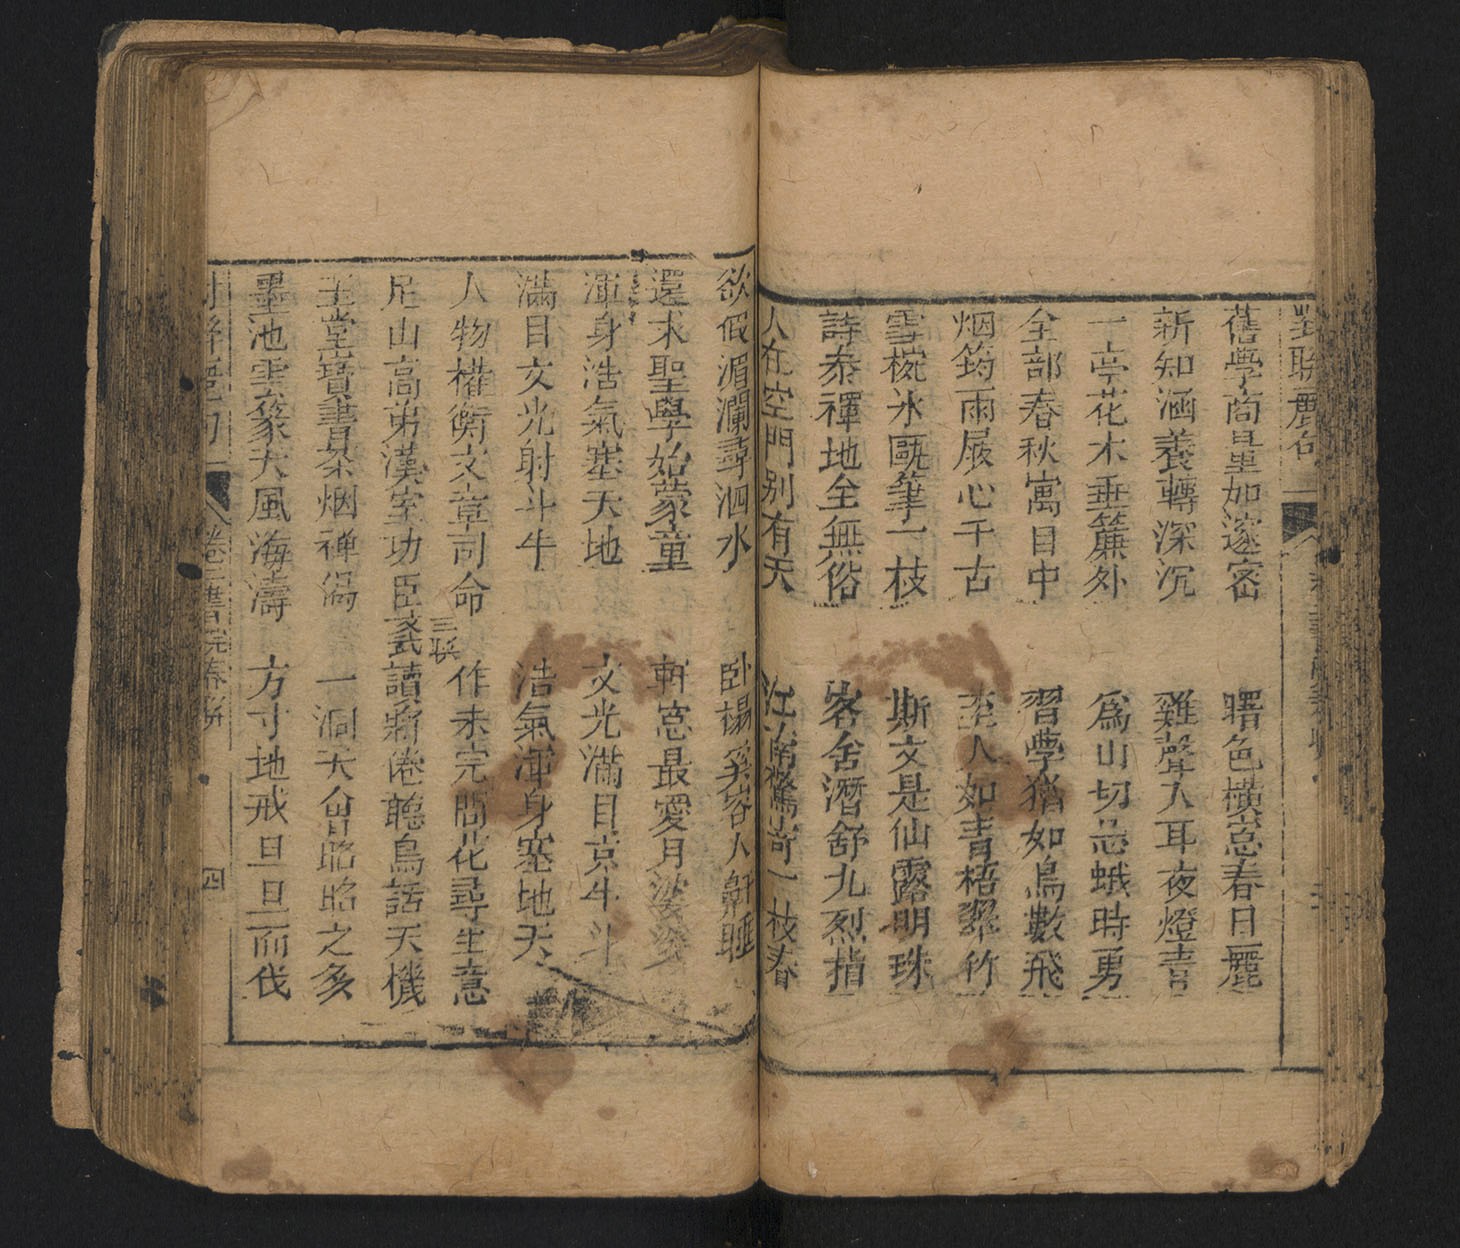 對聯麗句
舊學商量如邃密　曙色橫窓春日麗
新知涵養轉深沉　雞聲入耳夜燈青
一亭花木垂簾外　爲山切忌蛾時勇
全部春秋寓目中　習學猶如鳥數飛
烟筠雨屐心千古　至人如青梧翠竹
雪椀氷甌筆一枝　斯文是仙露明珠
詩泰禪地全無俗　客舍潛舒九烈指
人在空門别有天　江南驚寄一枝春
欲假湄瀾尋泗水　卧榻奚容人鼾睡
還求聖學始蒙童　軒窓最愛月婆娑
渾身浩氣塞天地　文光滿目京牛斗
滿目文光射斗牛　浩氣渾身塞地天
人物權衡文章司命　作未完問花尋生意
三聯
足山高弟漢室功臣文武　讀漸倦聽鳥話天機
玉堂寶書茶烟禅榻　一洞天會昭昭之多
墨池雲篆天風海濤　方寸地戒旦旦而伐
卷二書院春聯
四